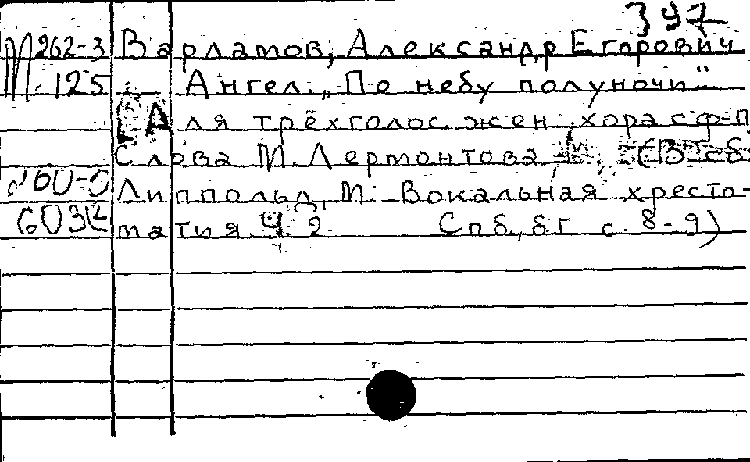 397
М 262-3 Варламов, Александр Егорович
М. 125 Ангел. „По небу полуночи"
[Для трёхголос. жен. хора с ф-п
Слова М. Лермонтова (В сб:
Липпольд, М. Вокальная хресто-
603 матия. Ч. 2 Спб, б г с. 8-9)